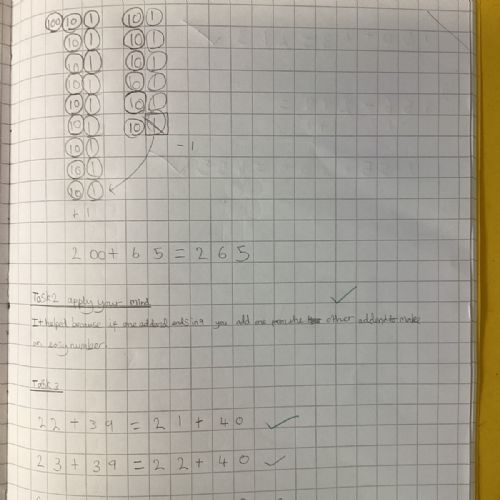 100 10 1 10 1
10 1 10 1
10 1 10 1
10 1 10 1
10 1 10 1
10 1 10 1
10 1
10 1
10 1
- 1
+ 1
200 + 65 = 265
Task 2 apply your mind
It helped because if one addend ends in 9 you add one from the other addend to make
an easy number.
Task 3
22 + 39 = 21 + 40
23 + 39 = 22 + 40